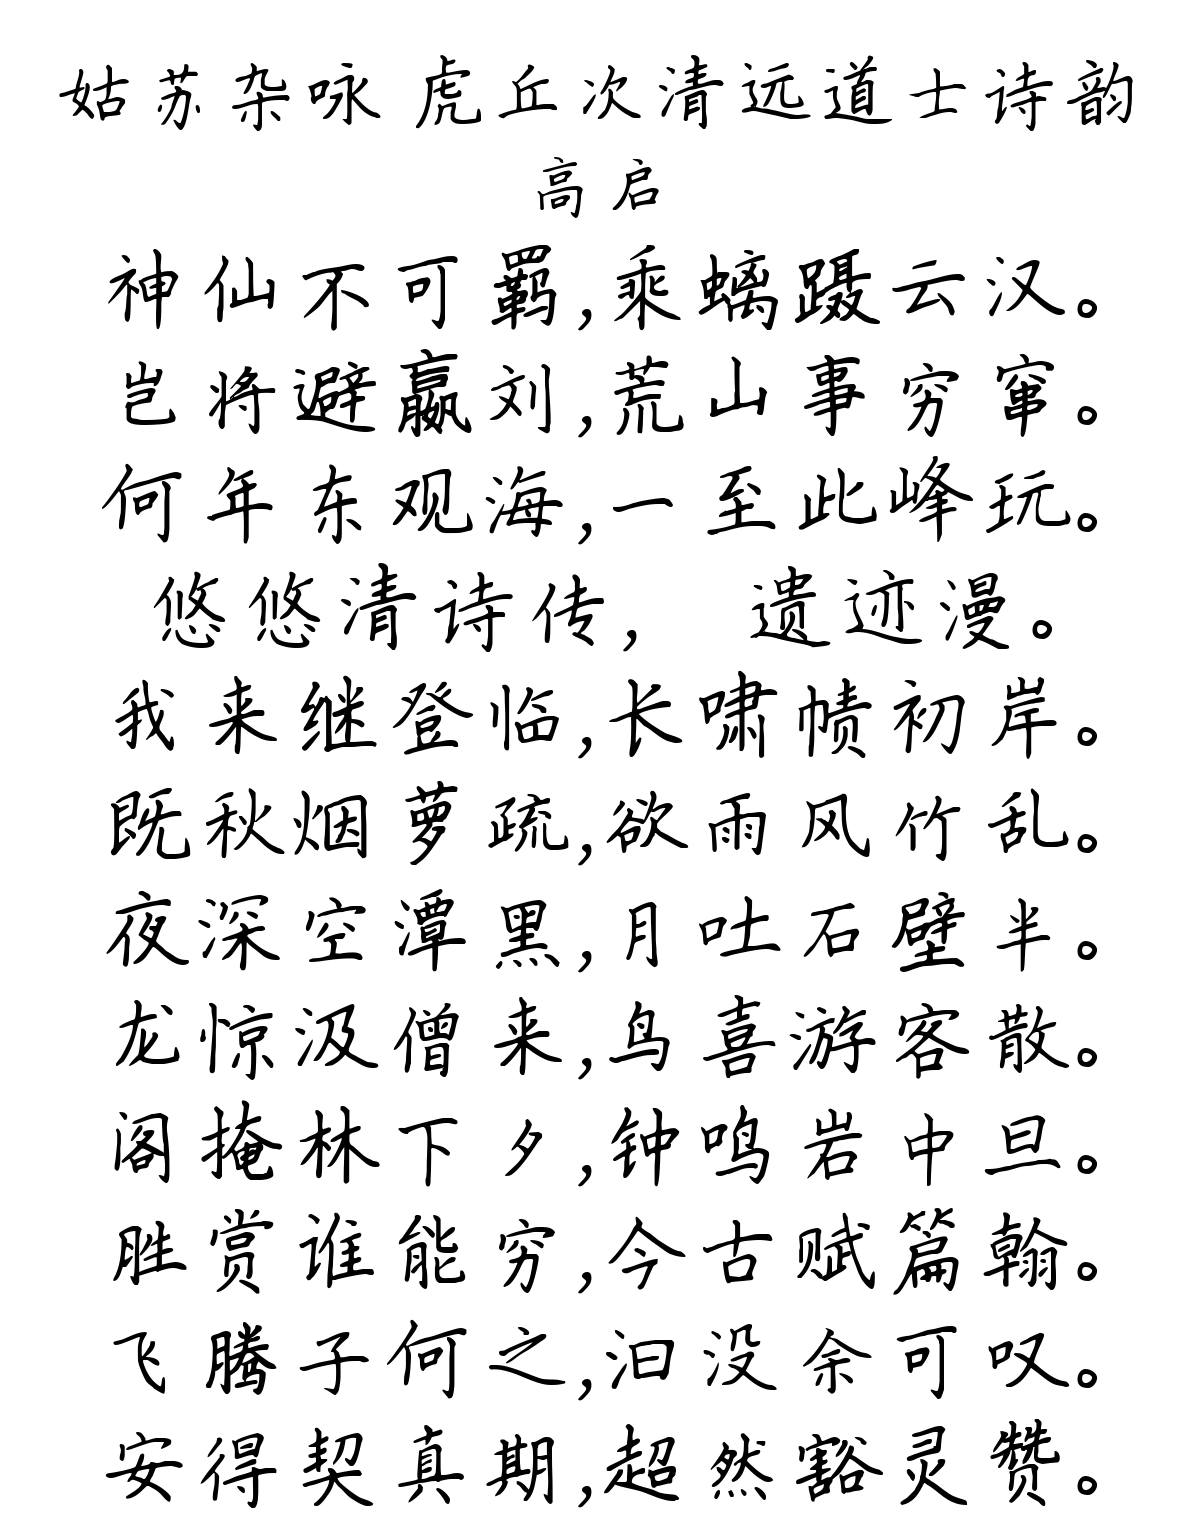 姑苏杂咏 虎丘次清远道士诗韵
高启
神仙不可羁,乘螭蹑云汉。
岂将避嬴刘,荒山事穷窜。
何年东观海,一至此峰玩。
悠悠清诗传, 遗迹漫。
我来继登临,长啸帻初岸。
既秋烟萝疏,欲雨风竹乱。
夜深空潭黑,月吐石壁半。
龙惊汲僧来,鸟喜游客散。
阁掩林下夕,钟鸣岩中旦。
胜赏谁能穷,今古赋篇翰。
飞腾子何之,汩没余可叹。
安得契真期,超然豁灵赞。